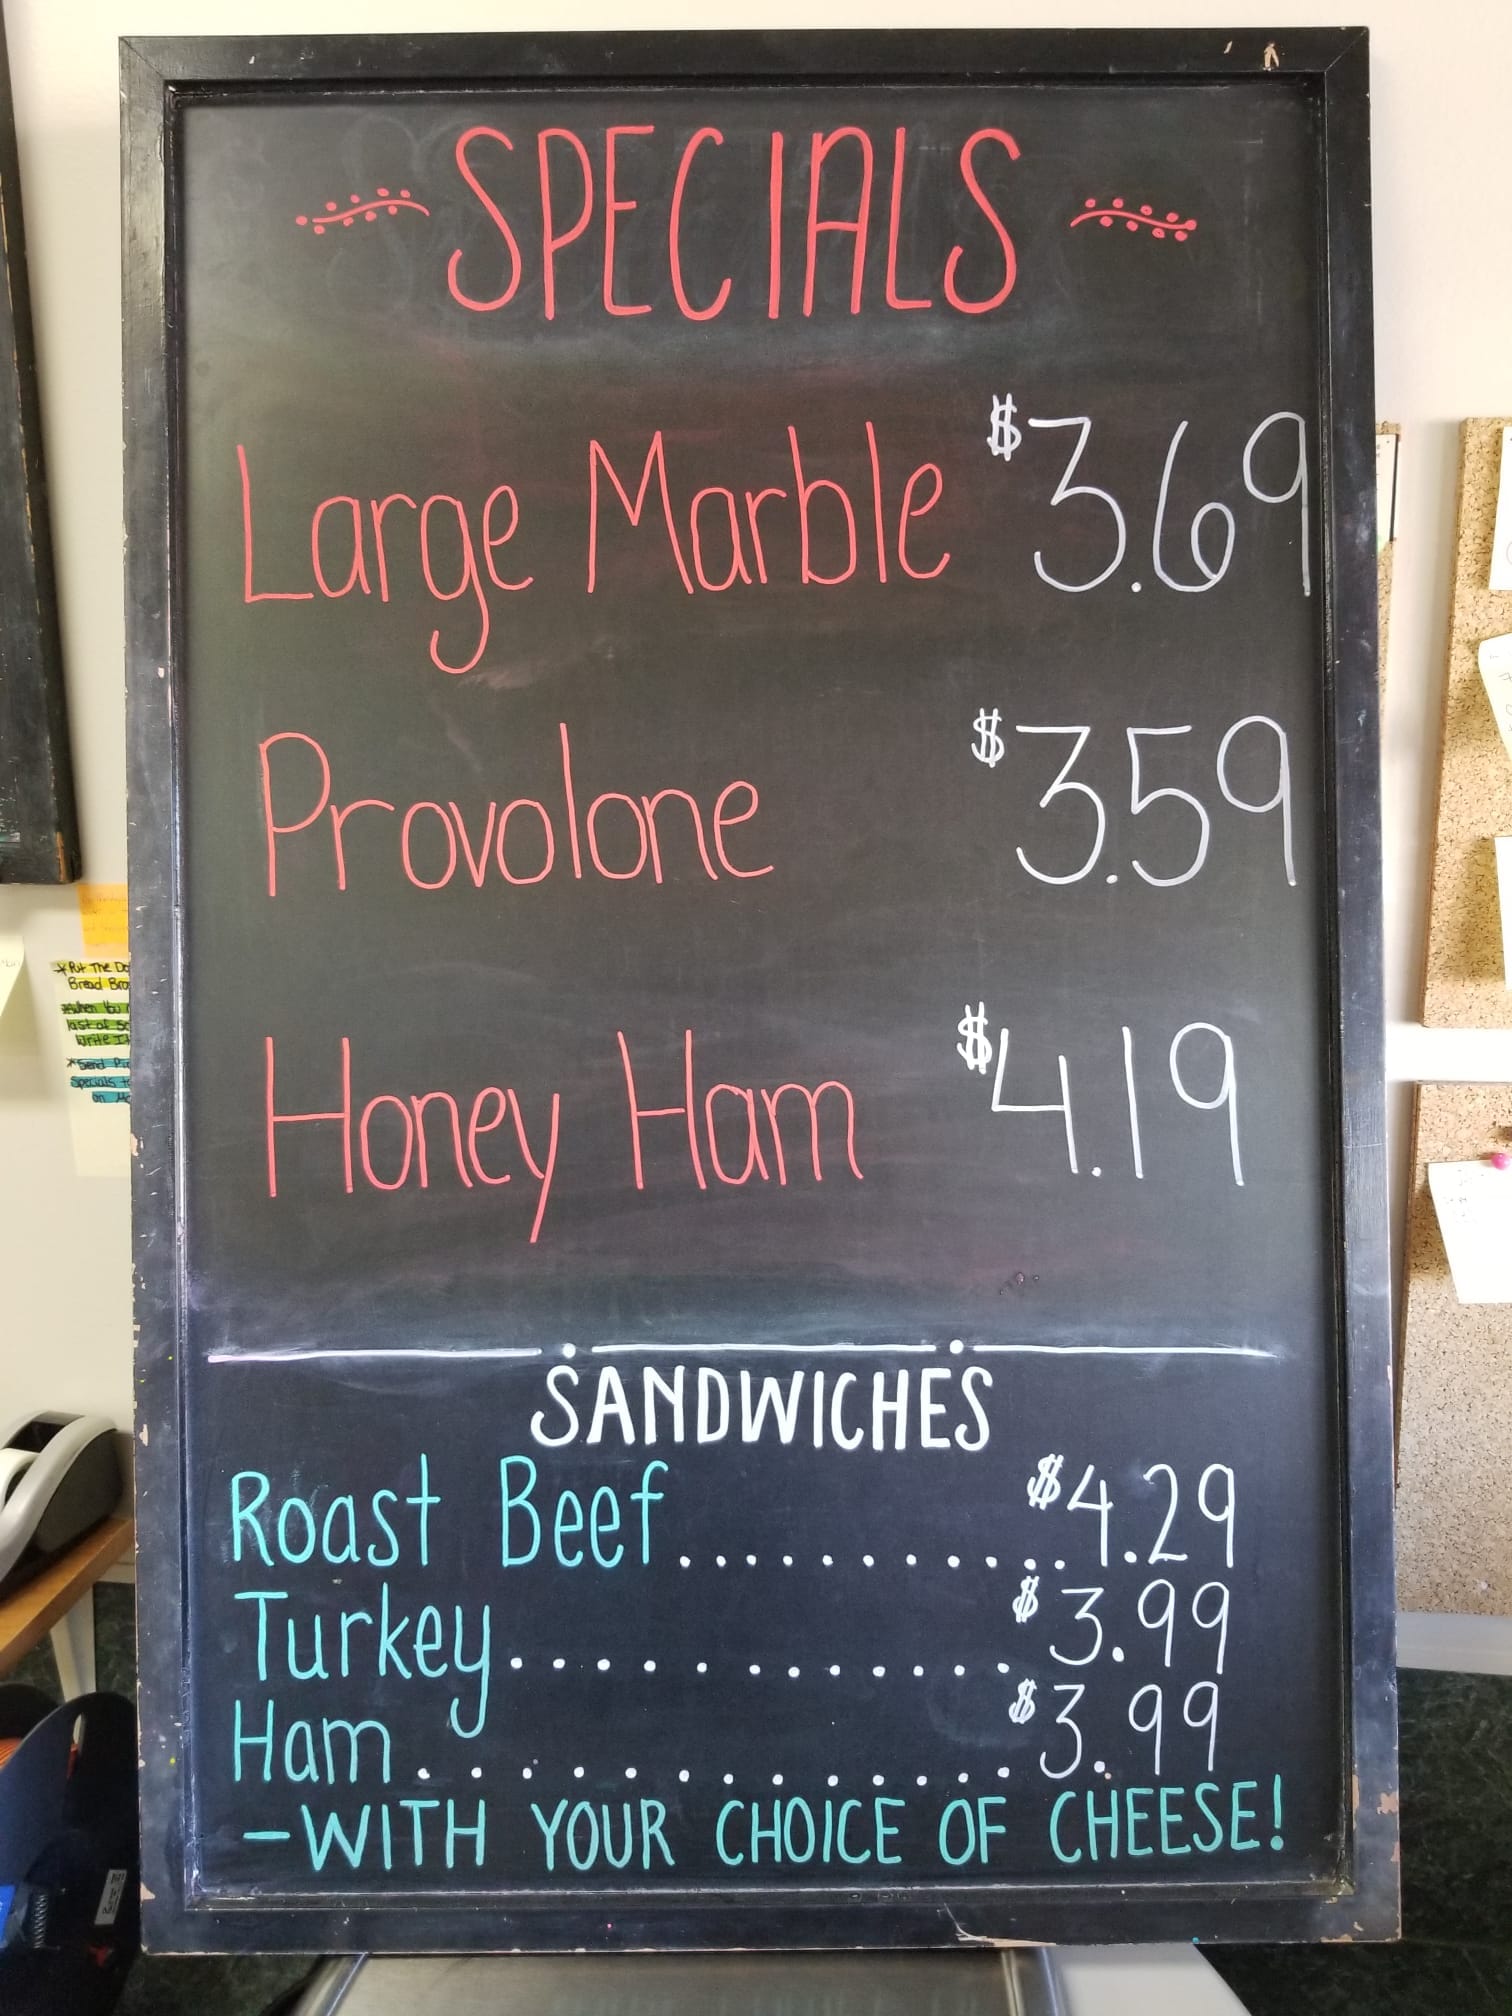 SPECIALS
Large Marble $3.69
Provolone $3.59
Honey Ham $4.19
SANDWICHES
Roast Beef............$4.29
Turkey............$3.99
Ham.............$3.99
-WITH YOUR CHOICE OF CHEESE!
*Put The Do
Bread
*When You
last of
Write It
*Send
Specials
on